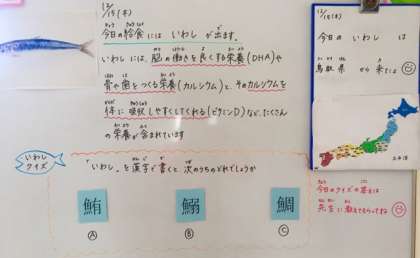 12/15(木)
今日の給食には いわし が出ます。
いわしには、脳の働きを良くする栄養(DHA)や
骨や歯をつくる栄養(カルシウム)と、そのカルシウムを
体に吸収しやすくしてくれる(ビタミンD)など、たくさん
の栄養が含まれています
いわし
クイズ
「いわし」を漢字で書くと 次のうちのどれでしょうか
鮪
鰯
鯛
A
B
C
12/15(木)
今日の いわし は
鳥取県 から 来たよ
日本海
今日のクイズの答えは
先生に教えてもらってね